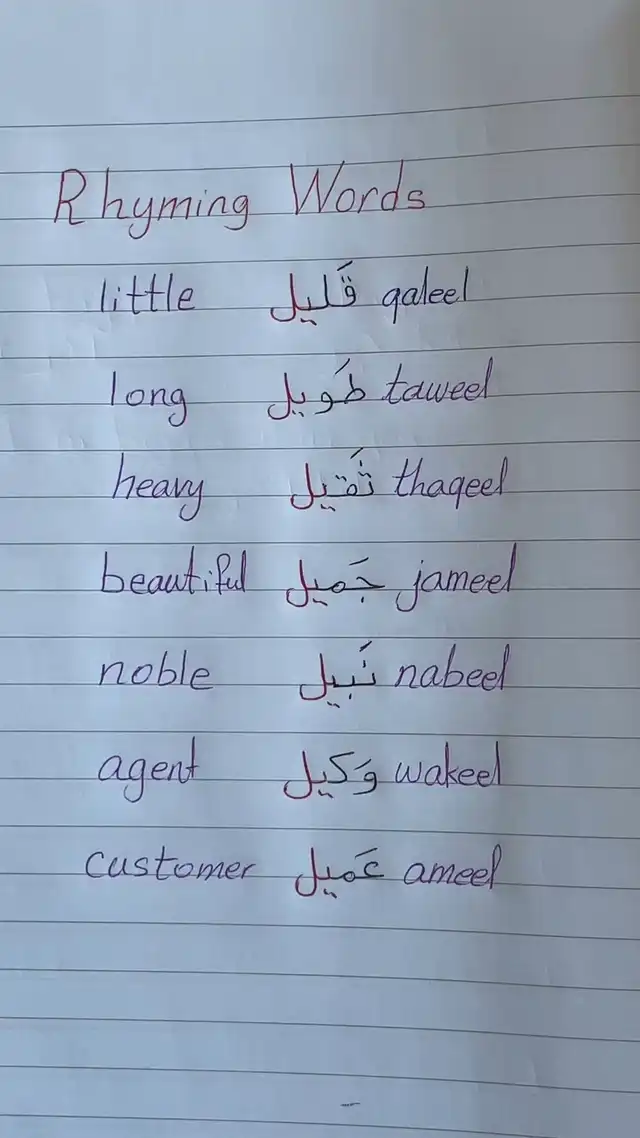 Rhyming Words
little قَليل qaleel
long طَويل taweel
heavy ثَقيل thaqeel
beautiful جَميل jameel
noble نَبيل nabeel
agent وَكيل wakeel
customer عَميل ameel